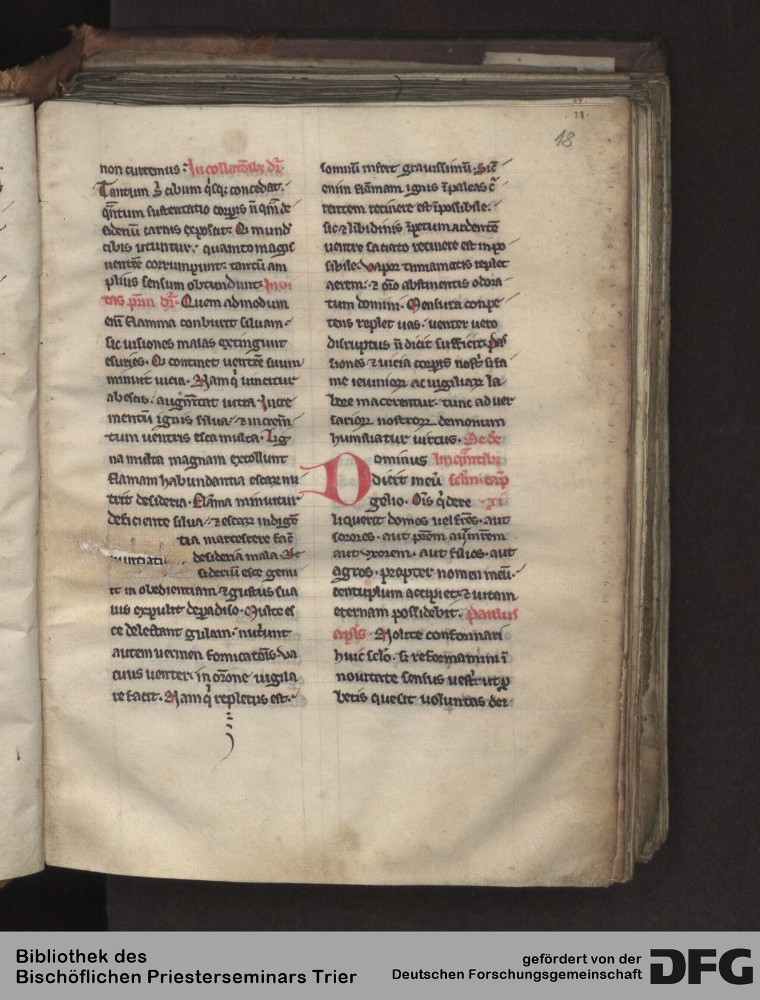 18
non curremus. In collat̄oib₃ dr̄.
Tantum ȩ cibum q̇sq₃ concedat.
q̄ntum sustentatio corp̄is n̄ q̄m de
siderium carnis exposcit. Q mund
cibis utuntur. quanto magis
uentrē corrumpunt. tantū am
plius sensum obtundunt.
tas pr̄m dr̄. Quem admodum
eī flamma conburit siluam.
sic uisiones malas extinguit
esuries. Q continet uentrē suum
minuit uicia. Nam q̇ uincitur
ab escis. augm̄tat uicia. Incre
mentū ignis silua. ⁊ increm̄
tum uentris esca multa. Lig
na multa magnam extollunt
flamam habundantia escar₄ nu
trit desideria. Flāma minuitur
deficiente silua. ⁊ escar₄ indigēt
tia marcescere fac̄
desideria mala. De
siderīu esce genu
it in obedientiam ⁊ gustus sua
uis expulit de padiso.
ce delectant gulam. nut̄unt
autem uermen fornicatōis. Va
cuus uenter. in or̄one uigila
re facit. Nam q̇ repletus est.
somnū infert grauissimū. Sic̄
enim flāmam ignis ī paleas c̄
rentem retinere est īpossibile.
sic ⁊ libidinis īpetum ardentē
uentre saciato retinere est inpo
sibile. Vapor replet
aerem. ⁊ or̄o abstinentis odora
tum domini. Mensura conpe
tens replet uas. uenter uero
disruptus n̄ dicit sufficit. Pas
siones ⁊ uicia corp̄is nost̄ si fa
me ieiunior₄ ac uigiliar₄ la
bore macerentur. tunc aduer
sarior₄ nostror₄ demonum
humiliatur uirtus. De de
ominus
dicit meū
gelio. Oīs q̇ dere xi
liquerit domos uel fr̄es. aut
sorores. aut pr̄em aut mr̄em
aut uxorem. aut filios. aut
agros. propter nomen meū.
centuplum accipiet. ⁊ uitam
eternam possidebit. Paulus
ap̄ls. Nolite conformari
huic sc̄lo. s̄ reformamini ī
nouitate sensus uest̄. ut p̄
betis que sit uoluntas dei.
Bibliothek des
Bischöflichen Priesterseminars Trier
gefördert von der
Deutschen Forschungsgemeinschaft
DFG